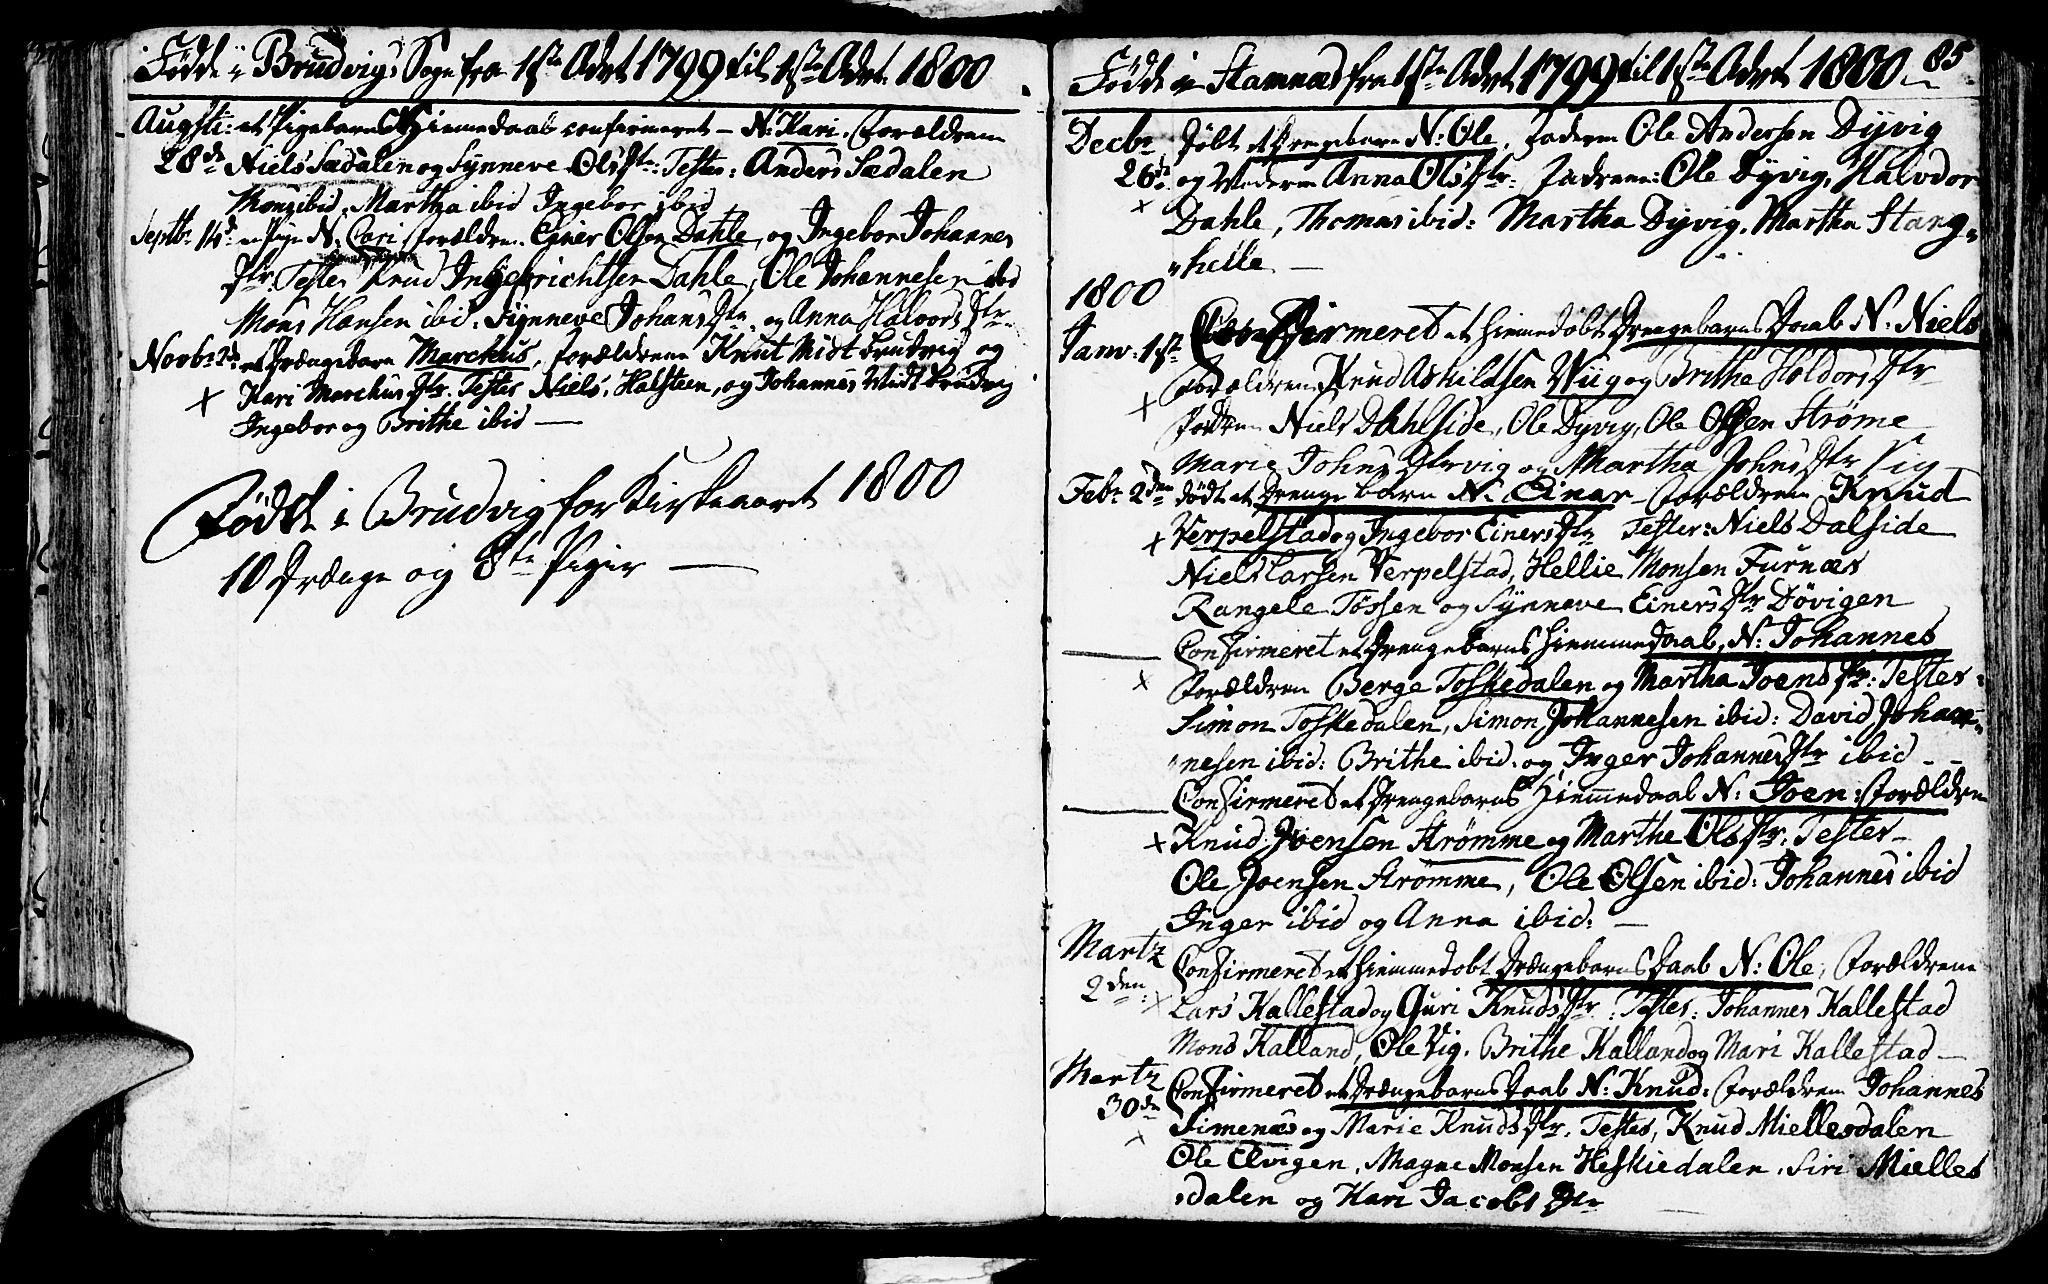 Fødde i Brudvigs Sogn fra 1ste Advt 1799 til 1ste Advt. 1800
Augsti: et Pigebarns Hiemmedaab confirmeret – N: Kari. Forældrene
28de Niels Sædalen og Synneve Olsdtr: Testes: Anders Sædalen
Mons ibid. Martha ibid Ingebor ibid
Septbr. 14de en Pige N. Cari Forældre. Einer Olsen Dahle, og Ingebor Johannes
dtr. Testes Knud Ingebrichtsen Dahle, Ole Johannesen ibid
Mons Hansen ibid. Synneve Johansdtr. og Anna Halvorsdtr
Novbr. et Drængebarn Marckus, Forældrene Knut Midtbrudvig og
Kari Marckusdtr. Testes Niels, Halsteen, og Johannes Midtbrudvig
Ingebor og Brithe ibid —
Fødde i Brudvig for Kirkeaaret 1800
10 Drænge og 8te Piger —
Fødde i Stamnæs fra 1ste Advt 1799 til 1ste Advt 1800 85
Decbr døbt et Drengebarn N: Ole, Faderen Ole Andersen Dyvig
26de og Moderen Anna Olsdtr. Fadrene: Ole Dyvig, Halvdor
Dahle, Thomas ibid: Martha Dyvig. Martha Stang-
helle —
1800
Janv: 1ste Confirmeret et hiemmedøbt Drengebarns Daab N: Niels
Forældrene Knud Askildsen Viig og Brithe Haldorsdtr
Faddrene Niels Dahlside, Ole Dyvig, Ole Olsen Strøme
Marie Johnsdtr Vig og Martha Johnsdtr Vig
Febr 2den døbt et Drengebarn N: Einar – Forældrene Knud
Verpelstad og Ingebor Einersdtr Testes: Niels Dalside
Niels Larsen Verpelstad, Hellie Monsen Furnæs
Rangele Tøssen og Synneve Einersdtr Døvigen
Confirmeret et Drengebarns hiemmedaab, N: Johannes
Forældrene Berge Toskedalen og Martha Joensdtr: Testes:
Simon Toskedalen, Simon Johannesen ibid: David Johan-
nesen ibid: Brithe ibid: og Inger Johannesdtr ibid –
Confirmeret et Drengebarns Hiemmedaab N: Joen: Forældrene
Knud Joensen Strømme og Marthe Olsdtr. Testes –
Ole Joensen Strømme, Ole Olsen ibid: Johannes ibid
Inger ibid og Anna ibid: —
Martz Confirmeret et hiemmedøbt Drængebarns Daab N: Ole, Forældrene
2den: Lars Kallestad og Guri Knudsdtr. Testes: Johannes Kallestad
Mons Kalland, Ole Vig. Brithe Kalland og Mari Kallestad —
Martz Confirmeret et Drængebarns Daab N: Knud: Forældrene Johannes
30de Simenæs og Marie Knudsdtr. Testes, Knud Miellesdalen
Ole Elvigen, Magne Monsen Heskiedalen, Siri Mielles
dalen og Kari Jacobsdtr